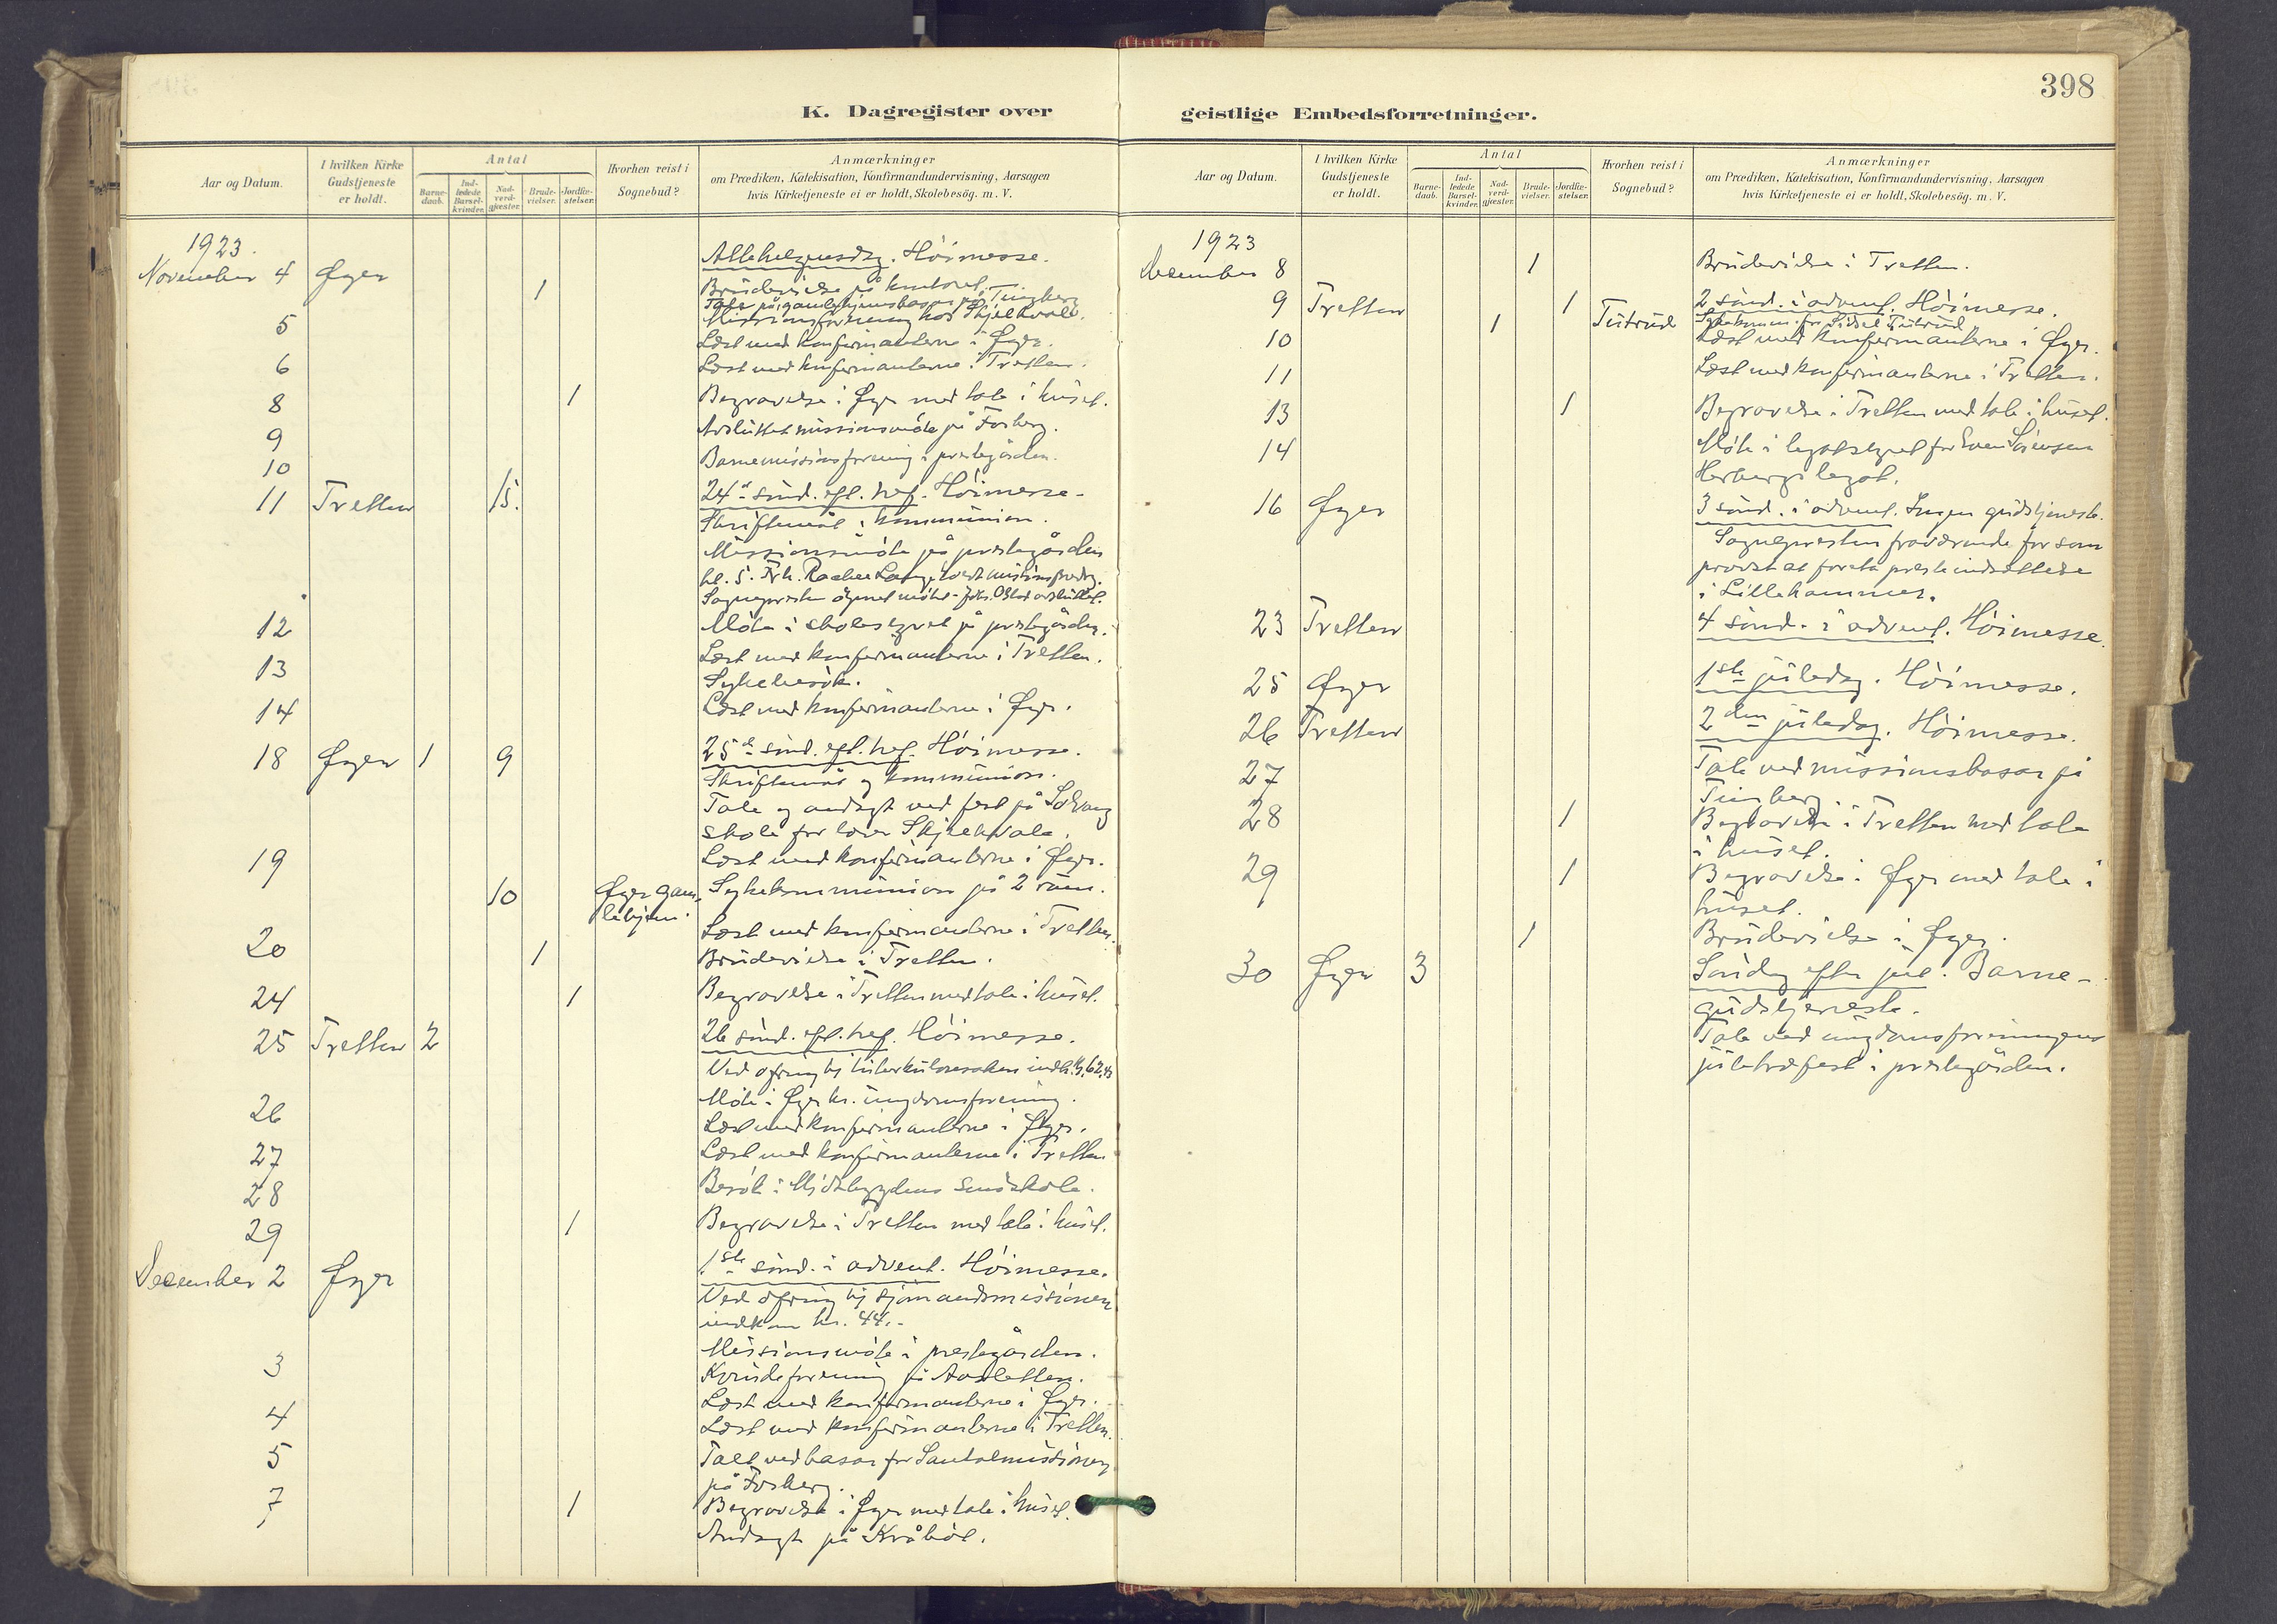 398
K. Dagregister over geistlige Embedsforretninger.
Aar og Datum.
I hvilken Kirke Gudstjeneste er holdt.
Antal
Barne-daab.
Ind-ledede Barsel-kvinder.
Nad-verd-gjæster.
Brude-vielser.
Jordfæ-stelser.
Hvorhen reist i Sognebud?
Anmærkninger
om Prædiken, Katekisation, Konfirmandundervisning, Aarsagen
hvis Kirketjeneste ei er holdt, Skolebesög. m. V.
1923.
November 4 Øyer Allehelgensdag. Höimesse.
1 Brudevielse på kontoret.
Tale på gamlehjemsbasar på Tingberg
5 Missionsforening hos Skjelkvale.
Læst med konfirmanterne i Øyer.
6 Læst med konfirmanterne i Tretten.
8 1 Begravelse i Øyer med tale i huset.
9 Avsluttet missionsmöte på Forberg.
10 Barnemissionsforening i prestegården.
11 Tretten 15. 24de sönd. eft. tref. Höimesse.
Skriftemål i kommunion.
Missionsmöte på prestegården
kl. 5. Frk. Rachel Lange holdt missionsforedrag.
Sognepresten åpnet mötet -
12 Möte i skolestyret på prestegården.
13 Læst med konfirmanterne i Tretten.
Sykebesök.
14 Læst med konfirmanterne i Øyer.
18 Øyer 1 9 25de sönd. eft. tref. Höimesse.
Skriftemål og kommunion.
Tale og andagt ved fest på Solvang
skole for lærer Skjelkvale.
19 Læst med konfirmanterne i Øyer.
10 Øyer gam- Sykekommunion på 2 rum.
lehjem.
20 Læst med konfirmanterne i Tretten.
1 Brudevielse i Tretten.
24 1 Begravelse i Tretten med tale i huset.
25 Tretten 2 26 sönd. eft. tref. Höimesse.
Ved ofring til tuberkulosesaken indk. kr. 62,
26 Möte i Øyer kr. ungdomsforening.
Læst med konfirmanterne i Øyer.
27 Læst med konfirmanterne i Tretten
28 Besök i Midtbygdens småskole.
29 1 Begravelse i Tretten med tale i huset.
December 2 Øyer 1ste sönd. i advent. Höimesse.
Ved ofring til sjömandsmissionen
indkom kr. 44.-
Missionsmöte i prestegården.
3 Kvindeforening på Aasletten.
Læst med konfirmanterne i Øyer.
4 Læst med konfirmanterne i Tretten.
5 Talt ved basar for Santalmissionen
på Forberg.
7 1 Begravelse i Øyer med tale i huset.
Andagt på Kråböl.
Aar og Datum.
I hvilken Kirke Gudstjeneste er holdt.
Antal
Barne-daab.
Ind-ledede Barsel-kvinder.
Nad-verd-gjæster.
Brude-vielser.
Jordfæ-stelser.
Hvorhen reist i Sognebud?
Anmærkninger
om Prædiken, Katekisation, Konfirmandundervisning, Aarsagen
hvis Kirketjeneste ei er holdt, Skolebesög. m. V.
1923
December 8 1 Brudevielse i Tretten.
9 Tretten 1 2 sönd. i advent. Höimesse.
1 Tutrud Sykekommun. for Sidsel Tutrud
10 Læst med konfirmanterne i Øyer.
11 Læst med konfirmanterne i Tretten.
13 1 Begravelse i Tretten med tale i huset.
14 Möte i legatstyret for Even Sörensen
Herbergs legat.
16 Øyer 3 sönd. i advent. Ingen gudstjeneste.
Sognepresten fraværende for som
provst at foreta presteindsættelse
i Lillehammer.
23 Tretten 4 sönd. i advent. Höimesse.
25 Øyer 1ste juledag. Höimesse.
26 Tretten 2den juledag. Höimesse.
27 Tale ved missionsbasar på
Tingberg.
28 1 Begravelse i Tretten med tale
i huset.
29 1 Begravelse i Øyer med tale i
huset.
1 Brudevielse i Øyer.
30 Øyer 3 Söndag efter jul. Barne-
gudstjeneste.
Tale ved ungdomsforeningens
juletræfest i prestegården.